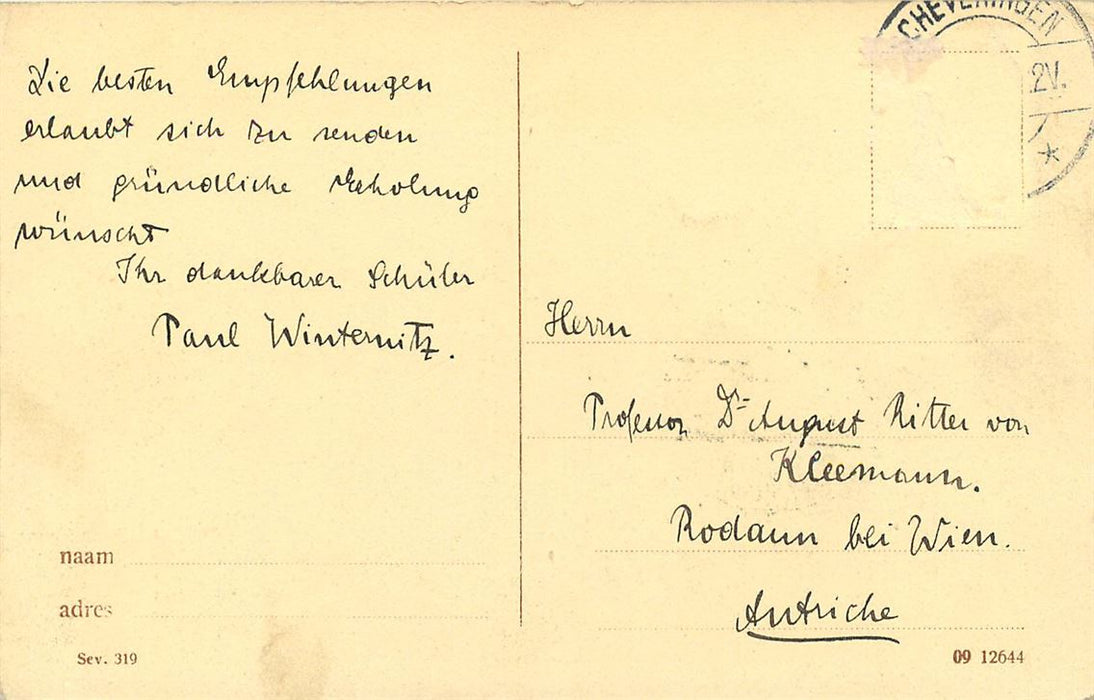 Die besten Empfehlungen
erlaubt sich zu senden
und gründliche Erholung
wünscht
Ihr dankbarer Schüler
Paul Winternitz.
naam
adres
Sev. 319
CHEVENINGEN
2V.
Herrn
Professor Dr August Ritter von
Kleemann.
Rodaun bei Wien.
Autriche
09 12644